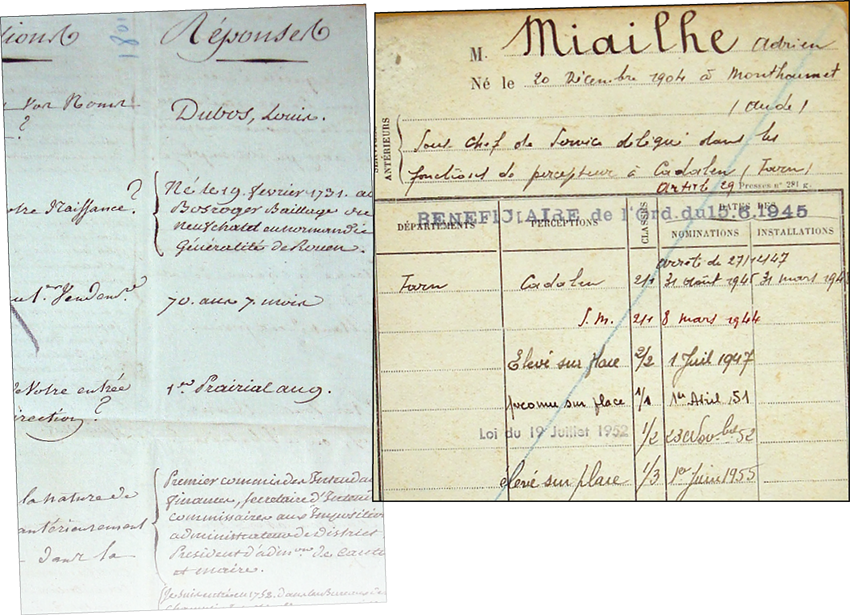 tions
Réponses
1801
vos Noms
?
Dubos, Louis.
Naissance?
Né le 19. fevrier 1731. au
Bosroger Bailliage de
neufchatel en normandie
Généralité de Rouen.
70. ans 7. mois
de Votre entrée
direction?
1er Prairial an 9.
la nature de
antérieurement
dans la
Premier commis des Intendan
finances, secrétaire d'Intend
commissaire aux Impositions
administrateur de district
President d'admon de canton
et maire.
Je suis entré en 1752. dans les Bureaux de
M. Miailhe Adrien
Né le 20 Décembre 1904 à Monthoumet
(Aude)
ANTÉRIEURS
Sous-chef de Service délégué dans les
fonctions de percepteur à Cadalen (Tarn)
article 29 Presses n° 291 g.
BENEFICIAIRE de l'Ord. du 15.6.1945
DÉPARTEMENTS PERCEPTIONS CLASSES DATES DES
NOMINATIONS INSTALLATIONS
arrêté de 27/1/47
Tarn Cadalen 2/1 31 août 194 31 mars 194
S.M. 2/1 8 mars 1944
Elevé sur place 2/2 1 Juil 1947
promu sur place 1/1 1er Avril 51
Loi du 19 Juillet 1952 1/2 52
élevé sur place 1/3 1er Juin 1955